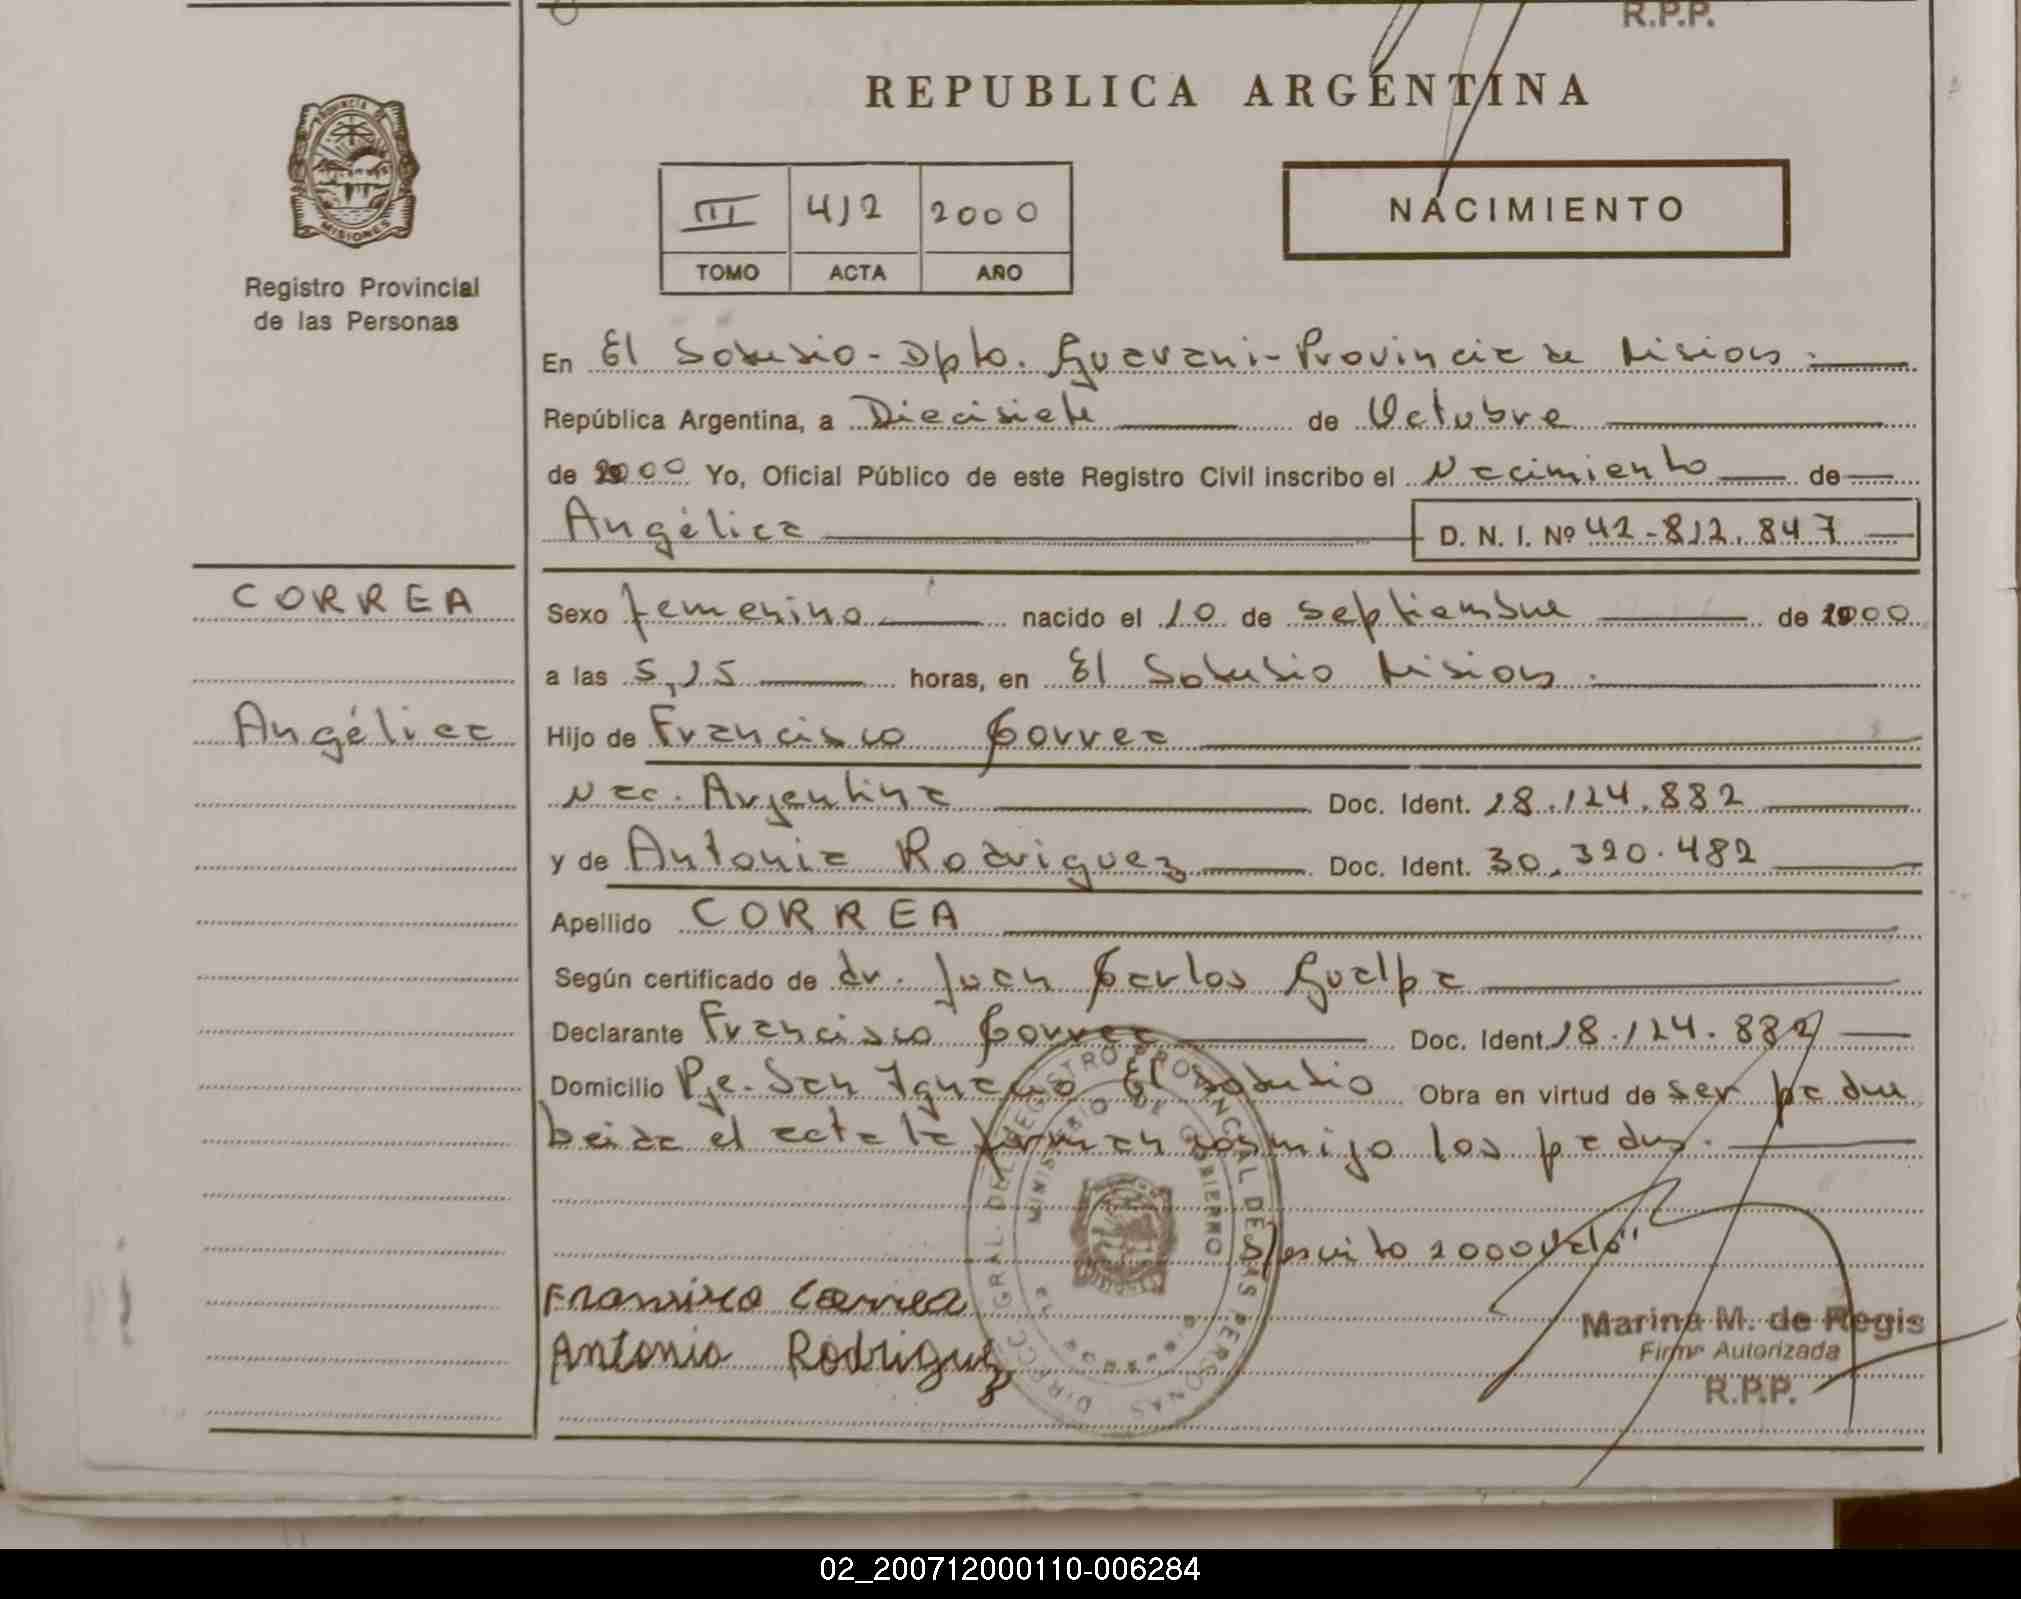 R.P.P.
REPUBLICA ARGENTINA
PROVINCIA DE
MISIONES
III 412 2000
TOMO ACTA AÑO
NACIMIENTO
Registro Provincial
de las Personas
En El Soberbio - Dpto. Guarani - Provincia de Misiones.
República Argentina, a Diecisiete de Octubre
de 2000 Yo, Oficial Público de este Registro Civil inscribo el Nacimiento de
Angélica D. N. I. Nº 42-812.847
CORREA
Angélica
Sexo femenino nacido el 10 de septiembre de 2000
a las 5,15 horas, en El Soberbio Misiones.
Hijo de Francisco Correa
Nac. Argentina Doc. Ident. 18.124.882
y de Antonia Rodriguez Doc. Ident. 30.320.482
Apellido CORREA
Según certificado de dr. Juan Carlos Gualpa
Declarante Francisco Correa Doc. Ident. 18.124.882
Domicilio Pje. San Ignacio El Soberbio Obra en virtud de ser padre
leida el acta la firman conmigo los padres.
S/escrito 2000 Vale"
Francisco Correa
Antonia Rodriguez
DIRECC. GRAL. DEL REGISTRO PROVINCIAL DE LAS PERSONAS
MINISTERIO DE GOBIERNO
Marina M. de Regis
Firma Autorizada
R.P.P.
02_200712000110-006284